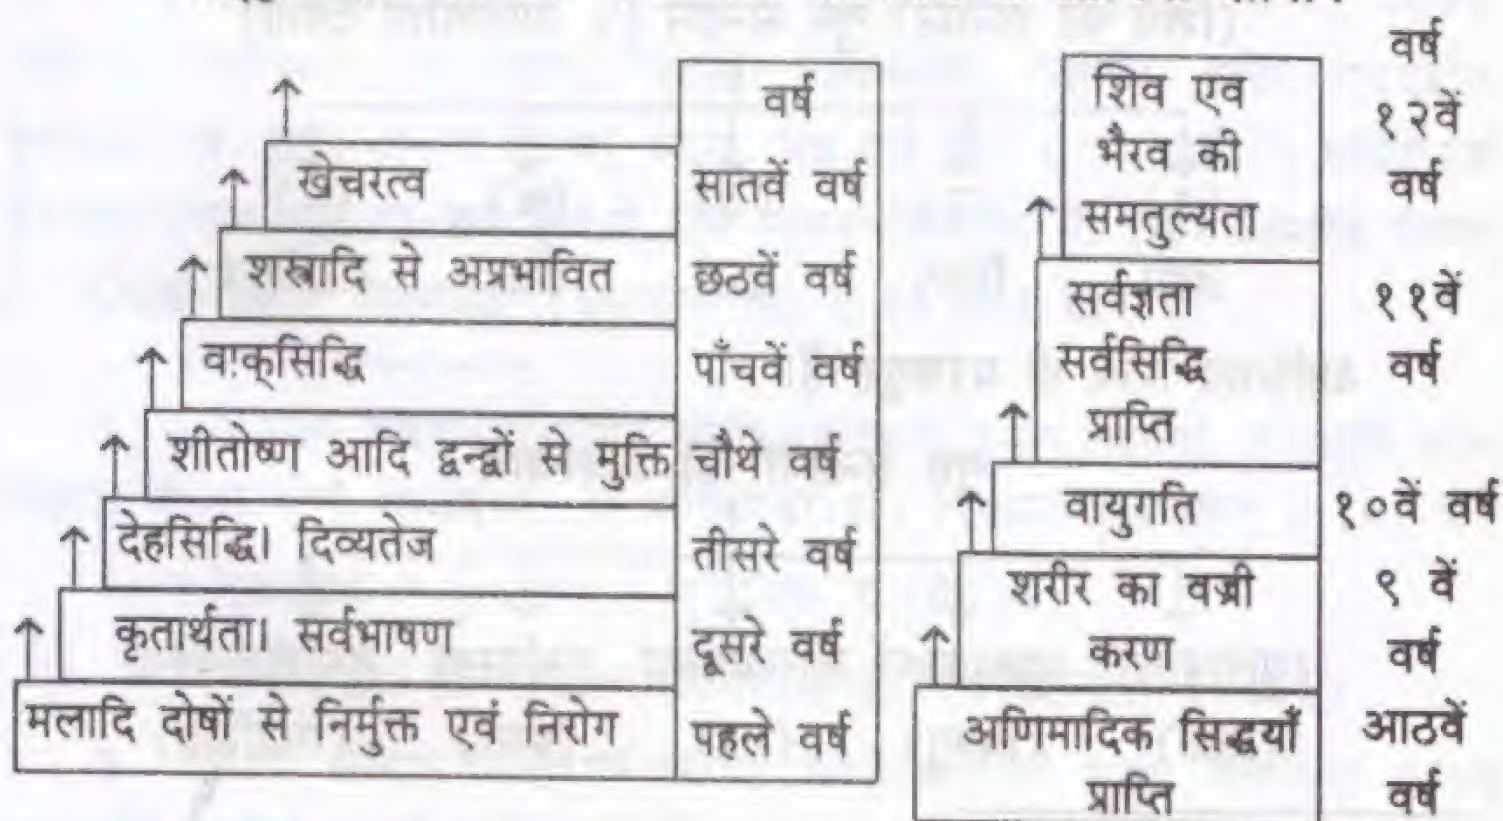 वर्ष
खेचरत्व सातवें वर्ष
शस्त्रादि से अप्रभावित छठवें वर्ष
वा!क्सिद्धि पाँचवें वर्ष
शीतोष्ण आदि द्वन्द्वों से मुक्ति चौथे वर्ष
देहसिद्धि। दिव्यतेज तीसरे वर्ष
कृतार्थता। सर्वभाषण दूसरे वर्ष
मलादि दोषों से निर्मुक्त एवं निरोग पहले वर्ष
वर्ष
शिव एव १२वें
भैरव की वर्ष
समतुल्यता
सर्वज्ञता ११वें
सर्वसिद्धि वर्ष
प्राप्ति
वायुगति १०वें वर्ष
शरीर का वज्री ९ वें
करण वर्ष
अणिमादिक सिद्धयाँ आठवें
प्राप्ति वर्ष